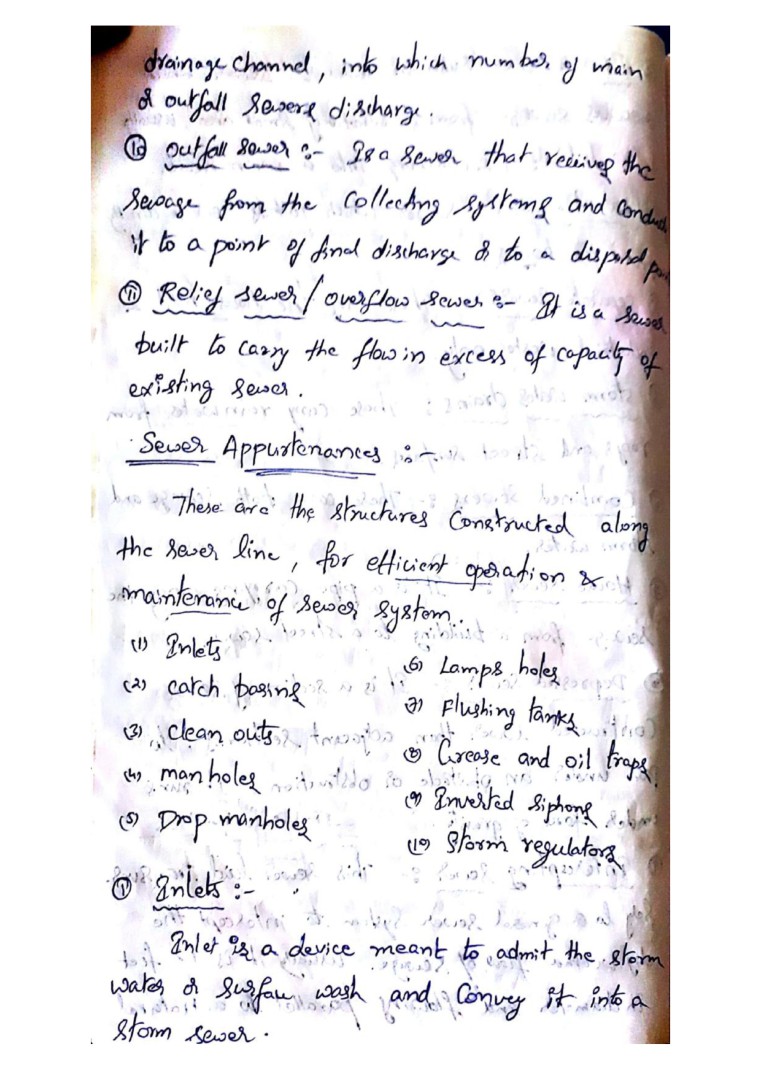 drainage channel, into which number of main
or outfall sewers discharge.
(10) outfall sewer :- Is a sewer that receives the
sewage from the collecting systems and conduct
it to a point of final discharge or to a disposal
(11) Relief sewer / overflow sewer :- It is a sewer
built to carry the flow in excess of capacity of
existing sewer.
Sewer Appurtenances :-
These are the structures constructed along
the sewer line, for efficient operation &
maintenance of sewer system.
(1) Inlets
(2) catch basins
(3) clean outs
(4) manholes
(5) Drop manholes
(6) Lamps holes
(7) Flushing tanks
(8) Grease and oil traps.
(9) Inverted siphons
(10) Storm regulators
(1) Inlets :-
Inlet is a device meant to admit the storm
water or surface wash and convey it into a
storm sewer.